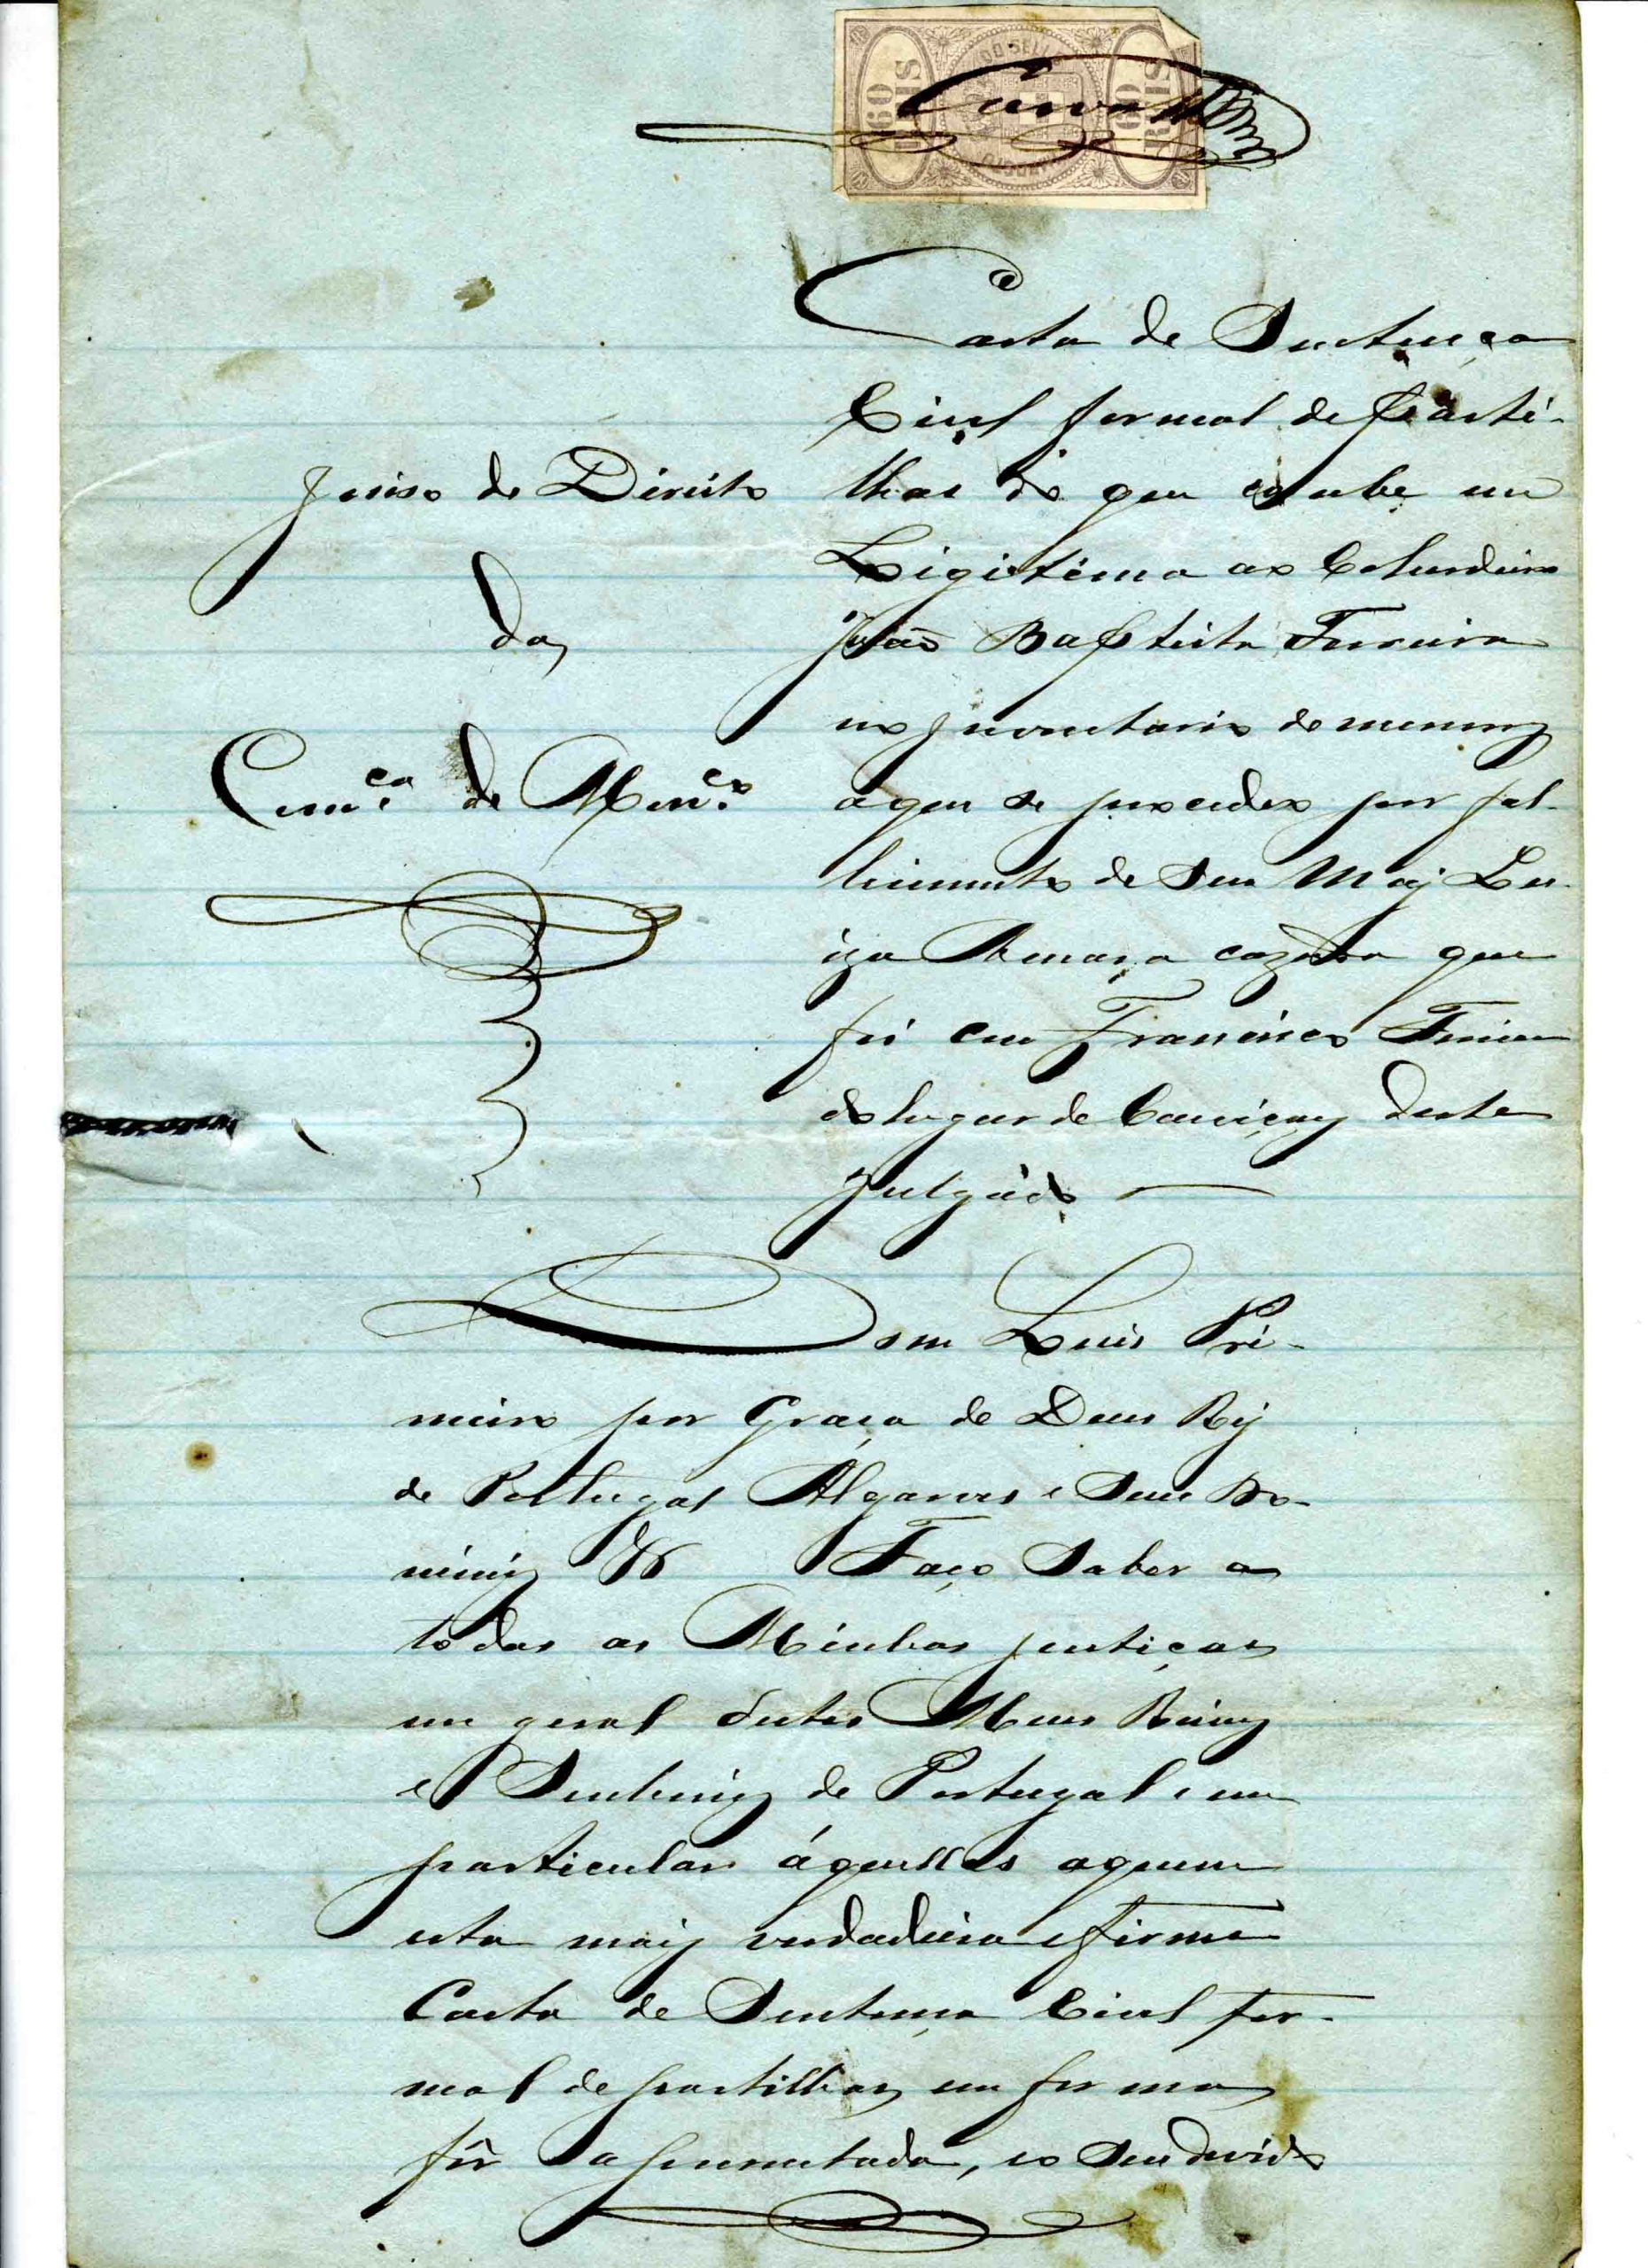 60
REIS
DO SELLO
60
REIS
Carta de Sentença
Civel formal de Parti-
lhas do que coube em
Ligitima ao Coherdeiro
João Baptista Ferreira
no Inventario de menores
aque se procedeo por fal-
licimento de sua Maj Lu-
iza cazada que
foi com Francisco Ferreira
do lugar de deste
Julgado
Juiso de Direito
da
Com.ca de
Dom Luis Pri-
meiro por Graça de Deus Rej
de Portugal Algarves e Seus Do-
minios &c Faço Saber a
todas as Minhas justiças
em geral destes Meus Reinos
e Senhorios de Portugal e em
particular áquellas aquem
esta mais verdadeira e firme
Carta de Sentença Civel for-
mal de partilhas em forma
fôr apresentada, e o seu devido